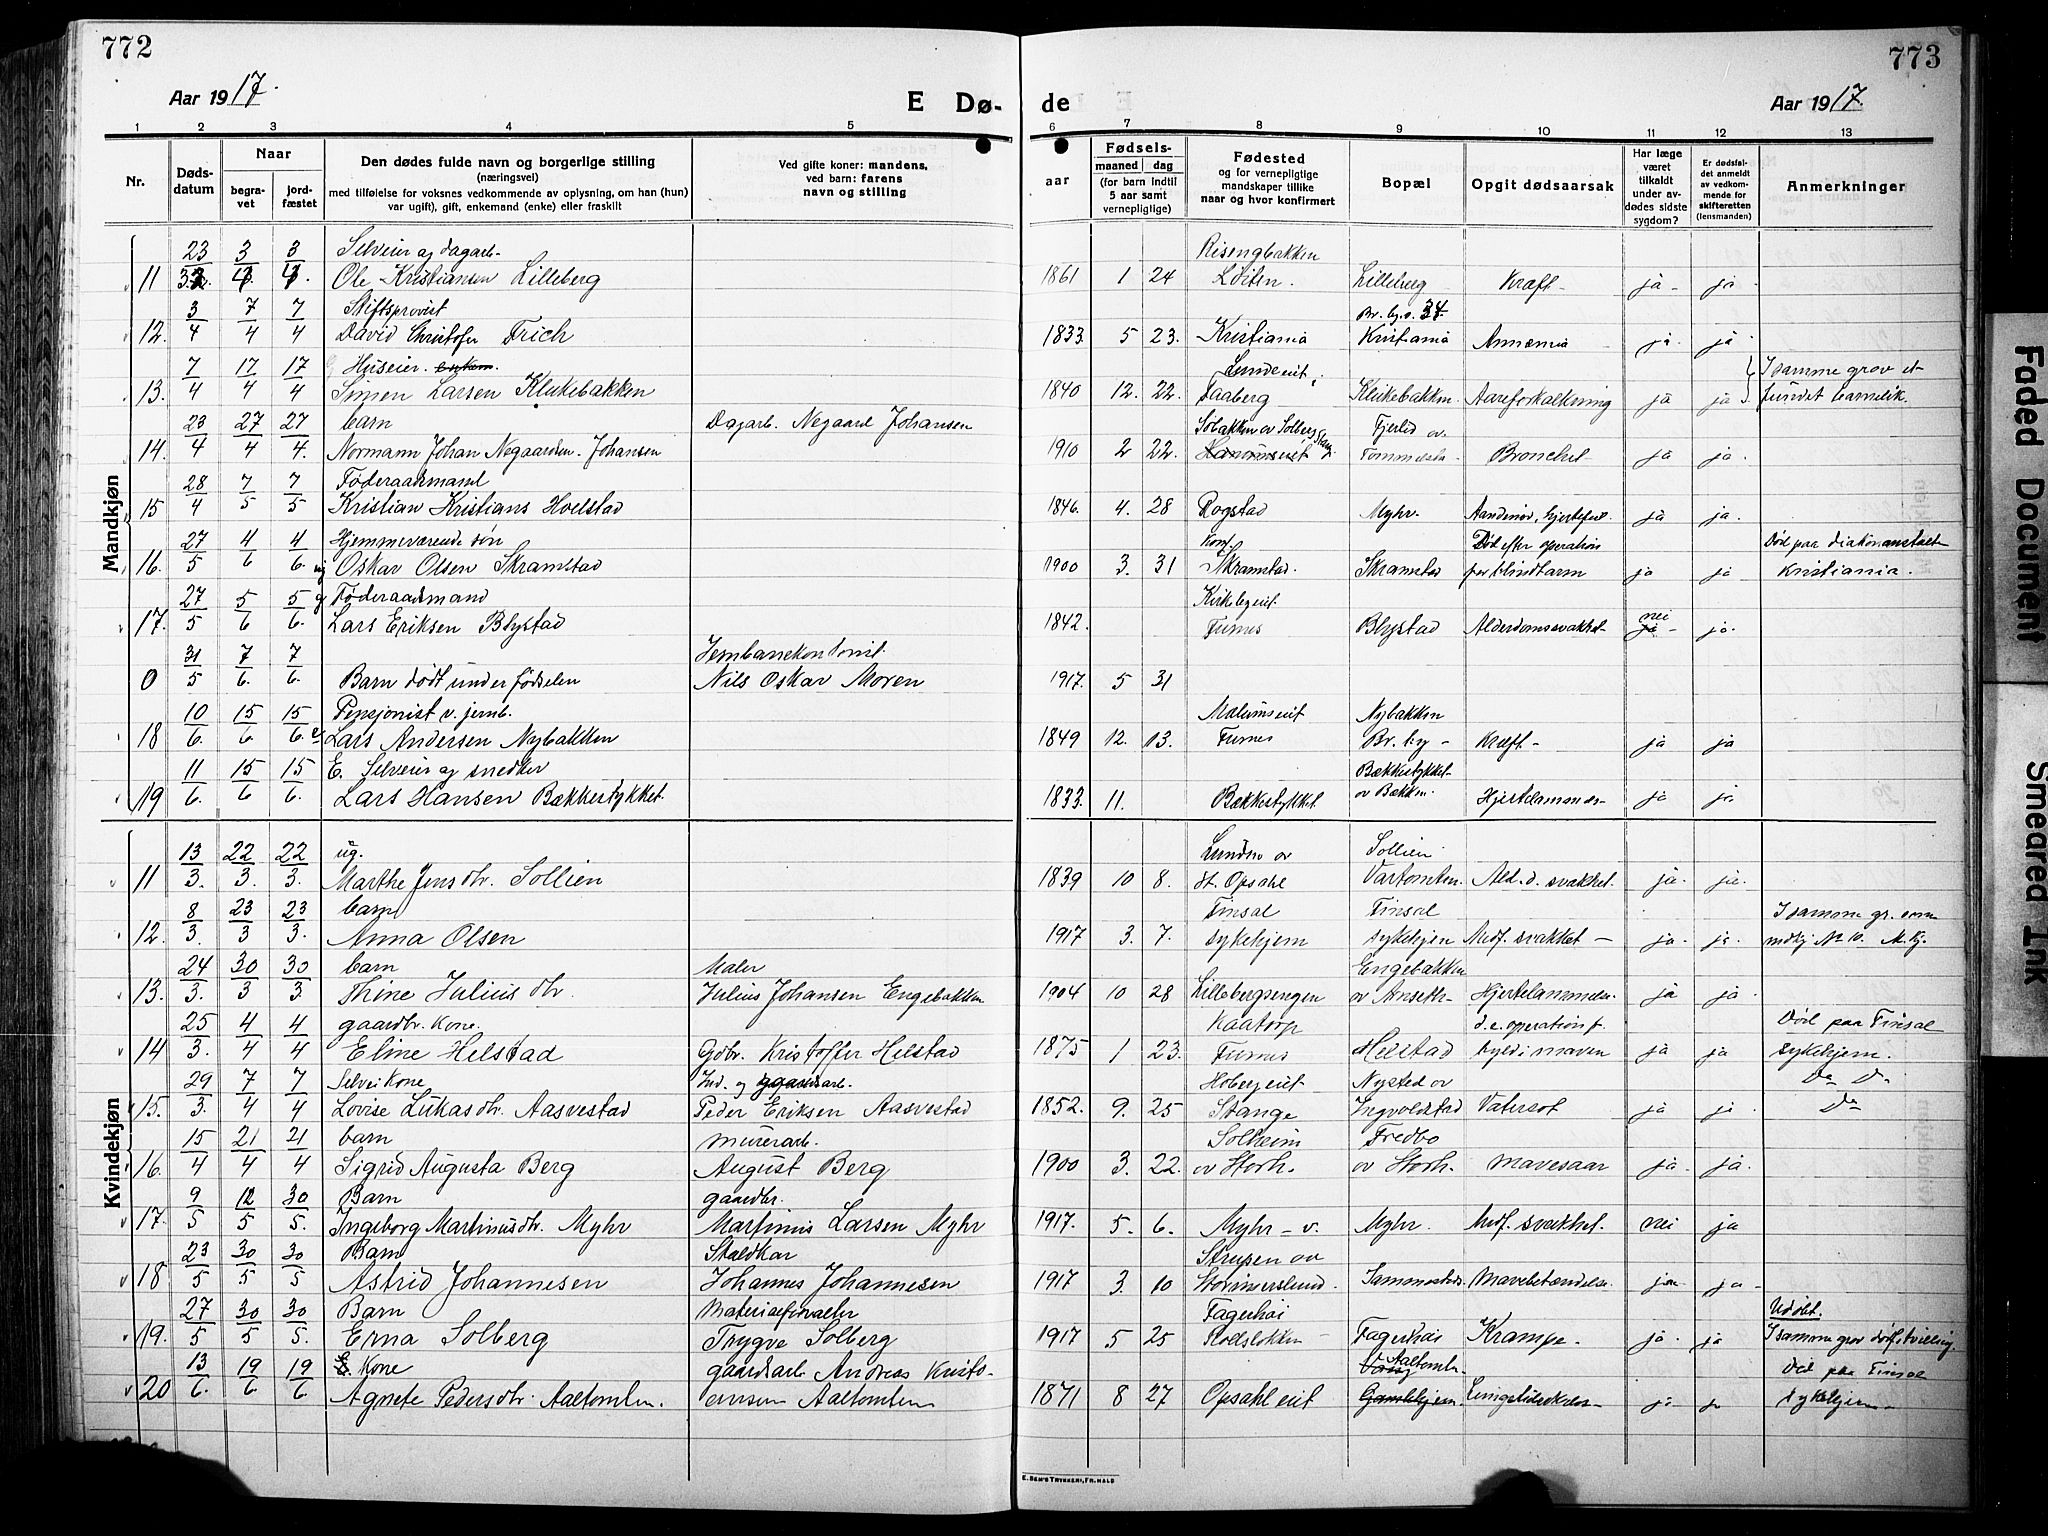 772
773
Aar 1917.
E Dø-
de
Aar 1917.
1 2 3 4 5 6 7 8 9 10 11 12 13
Nr.
Døds-
datum
Naar
begra-
vet
jord-
fæstet
Den dødes fulde navn og borgerlige stilling
(næringsvei)
med tilføielse for voksnes vedkommende av oplysning, om han (hun)
var ugift), gift, enkemand (enke) eller fraskilt
Ved gifte koner: mandens,
ved barn: farens
navn og stilling
aar
Fødsels-
maaned dag
(for barn indtil
5 aar samt
vernepligtige)
Fødested
og for vernepligtige
mandskaper tillike
naar og hvor konfirmert
Bopæl
Opgit dødsaarsak
Har læge
været
tilkaldt
under av-
dødes sidste
sygdom?
Er dødsfal-
det anmeldt
av vedkom-
mende for
skifteretten
(lensmanden)
Anmerkninger
Mandkjøn
23 3 3 Selveier og dagarb. Risengbakken
11 Ole Kristiansen Lilleberg 1861 1 24 Løiten. Lilleberg Kræft ja ja
3 7 7 Stiftsprovst Br. by. v. 34
12. 4 4 4 David Christofer Frich 1833 5 23. Kristiania Kristiania Annæmia ja ja
7 17 17 Huseier. enkem. Lundeeit I samme grov et
13. 4 4 4 Simen Larsen Klukebakken 1840 12. 22. Faaberg Klukebakken Aareforkalkning ja ja fundet barnelik.
23 27 27 barn Dagarb. Negaard Johansen Sobakken ov Solberg Fjerlid ov.
14. 4 4 4. Normann Johan Negaardsen Johansen 1910 2 22. Bronchit ja ja.
28 7 7 Føderaadsmand
15 4 5 5 Kristian Kristians Hoelstad 1846. 4. 28 Rogstad Myhr. Aandenød, hjertefeil ja ja.
27 4 4 Hjemmeværende søn Konf. Død efter operation Død paa diakonanstalt
16. 5 6 6. ug Oskar Olsen Skramstad 1900 3. 31 Skramstad. Skramstad for blindtarm ja ja Kristiania.
27 5 5 g Føderaadsmand Kirkebyeit nei
17. 5 6 6. Lars Eriksen Blystad 1842. Furnes Blystad Alderdomssvakhet ja ja.
31 7 7 Jernbanekontorist.
0 5 6. 6. Barn dødt under fødselen Nils Oskar Moren 1917. 5 31
10 15 15 Pensjonist v. jernb. Malumseit Nybakken
18 6. 6. 6. e Lars Andersen Nybakken 1849 12. 13. Furnes Br. by Kræft ja ja
11 15 15 E. Selveier og snedker Bækkestykket
19 6. 6 6. Lars Hansen Bækkestykket. 1833 11. Bækkestykket ov Bækken. Hjertelammelse ja ja
Kvindekjøn
13 22 22 ug. Lunden ov Sollien
11 3. 3. 3. Marthe Jensdtr. Sollien 1839 10 8. St. Opsahl Vartomten. Ald. d. svakhet. ja. ja.
8 23 23 barn Finsal Finsal I samme gr. som
12. 3. 3 3. Anna Olsen 1917 3. 7. sykehjem sykehjem Medf. svakhet ja. ja. mdkj No 10. M. kj.
24 30 30 barn Maler Engebakken
13. 3. 3 3. Thine Julius dtr. Julius Johansen Engebakken 1904 10 28 Lillebergsengen ov Anseth. Hjertelammelse ja ja
25 4 4 gaardbr. kone. Kaatorp d.e. operation f. Død paa Finsal
14 3. 4 4 Eline Helstad Gdbr. Kristoffer Helstad 1875 1 23. Furnes Helstad byld i maven ja ja sykehjem.
29 7 7 Selvei Kone Ind. og gaardsarb. Hobergeit Nysted ov Do Do
15. 3. 4 4 Lovise Lukasdtr. Aasvestad Peder Eriksen Aasvestad 1852. 9. 25 Stange Ingvoldstad Vatersot ja ja Do
15 21 21 barn murerarb. Solheim Fredbo
16. 4 4 4 Sigrid Augusta Berg August Berg 1900 3. 22. ov Storh. ov Storh. Mavesaar ja ja.
9 12 30 Barn gaardbr.
17. 5 5 5. Ingeborg Martinusdtr. Myhr Martinus Larsen Myhr 1917. 5. 6. Myhr v. Myhr. Medf. svakhet. nei ja
23 30 30 Barn Staldkar Strupen ov
18 5 5 5 Astrid Johannesen Johannes Johannesen 1917 3. 10 Mavebetændelse ja ja
27 30 30 Barn Materialforvalter Fagerhøi Udøbt.
19. 5 5 5. Erna Solberg Trygve Solberg 1917 5 25 Fagerhøi Krampe. ja. ja I samme grov dødf. tvilling.
13 19 19 Kone gaardsarb Andreas Kristi- Aaltomten. Død paa Finsal
20 6. 6 6 Agnete Pedersdtr. Aaltomten. ansen Aaltomten 1871 8 27 Opsahl eit Lungetuberkulose ja ja sykehjem
E. SEM'S TRYKKERI, FR.HALD
Faded Document
Smeared Ink